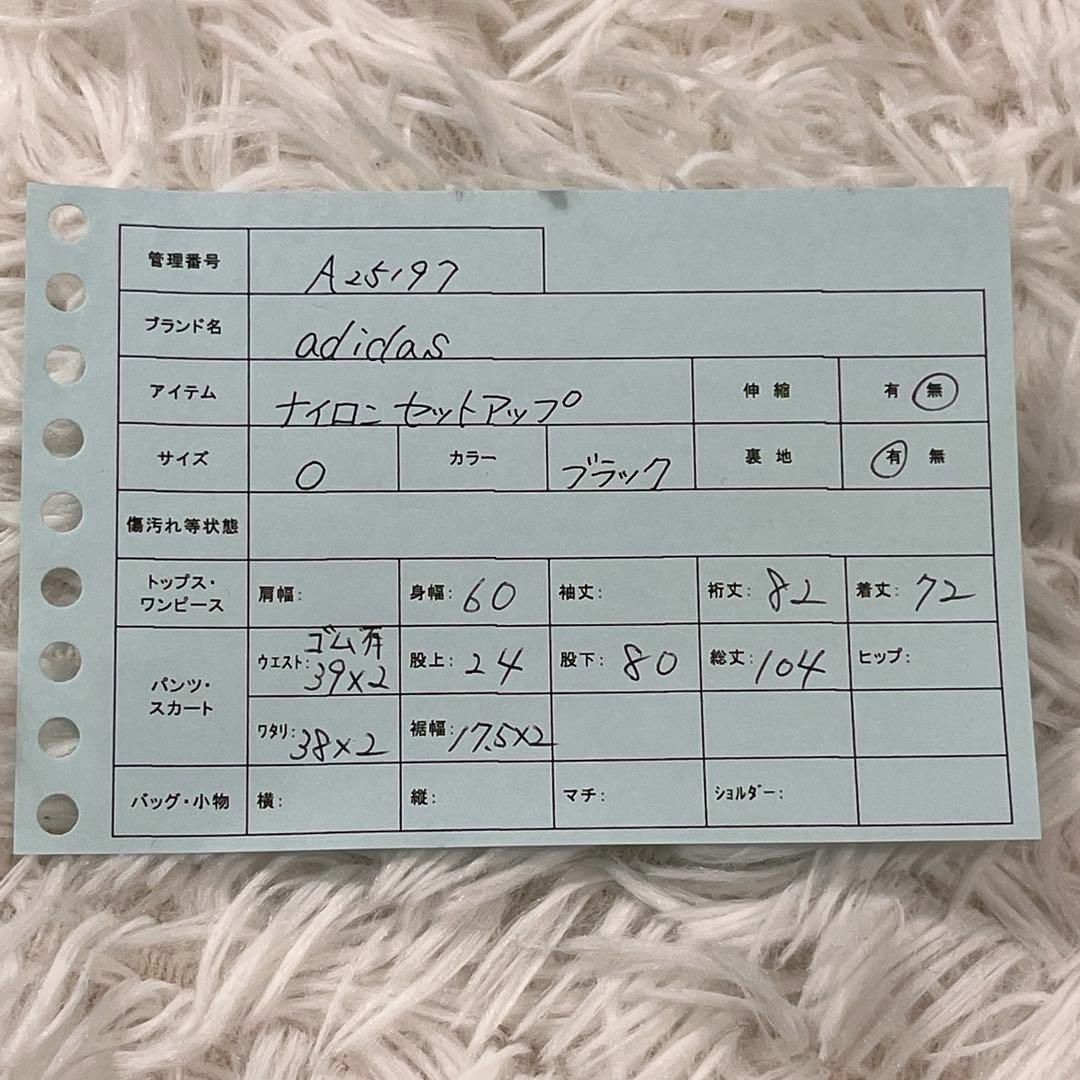 管理番号 A25197
ブランド名 adidas
アイテム ナイロンセットアップ 伸縮 有 無
サイズ O カラー ブラック 裏地 有 無
傷汚れ等状態
トップス・
ワンピース 肩幅: 身幅: 60 袖丈: 裄丈: 82 着丈: 72
パンツ・
スカート ウエスト: ゴム有
39×2 股上: 24 股下: 80 総丈: 104 ヒップ:
ワタリ: 38×2 裾幅: 17.5×2
バッグ・小物 横: 縦: マチ: ショルダー: